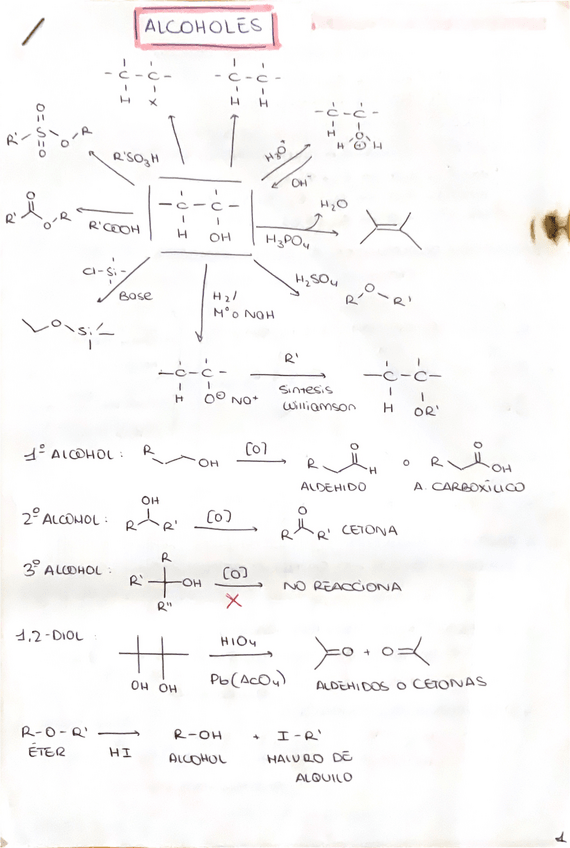 ALCOHOLES
- C - C -   - C - C -
H X   H H
- C - C -
H H O⊕ H
O
R' S O R
O
R'SO3H
H3O⊕
OH⁻
O
R' O R
R'COOH
- C - C -
H OH
H2O
H3PO4
Cl-Si-
Base
H2/
Mº o NaH
H2SO4
R O R'
O Si
- C - C -
H O⊖ Na+
R'
Síntesis
Williamson
- C - C -
H OR'
1º ALCOHOL: R OH [O] R O H o R O OH
ALDEHIDO A. CARBOXÍLICO
2º ALCOHOL: OH R R' [O] O R R' CETONA
3º ALCOHOL: R R' OH R'' [O] X NO REACCIONA
1,2-DIOL: OH OH HIO4 =O + O=
Pb(AcO4) ALDEHIDOS O CETONAS
R-O-R' → R-OH + I-R'
ÉTER HI ALCOHOL HALURO DE
ALQUILO
1